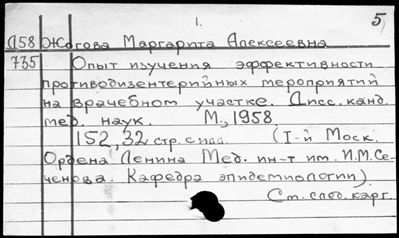 1.
5
Д58 Жогова Маргарита Алексеевна
735 Опыт изучения эффективности
противодизентерийных мероприятий
на врачебном участке. Дисс. канд.
мед. наук. М., 1958.
152, 32 стр. с илл. (I-й Моск.
Ордена Ленина Мед. ин-т им. И.М.Се-
ченова. Кафедра эпидемиологии)
См. след. карт.